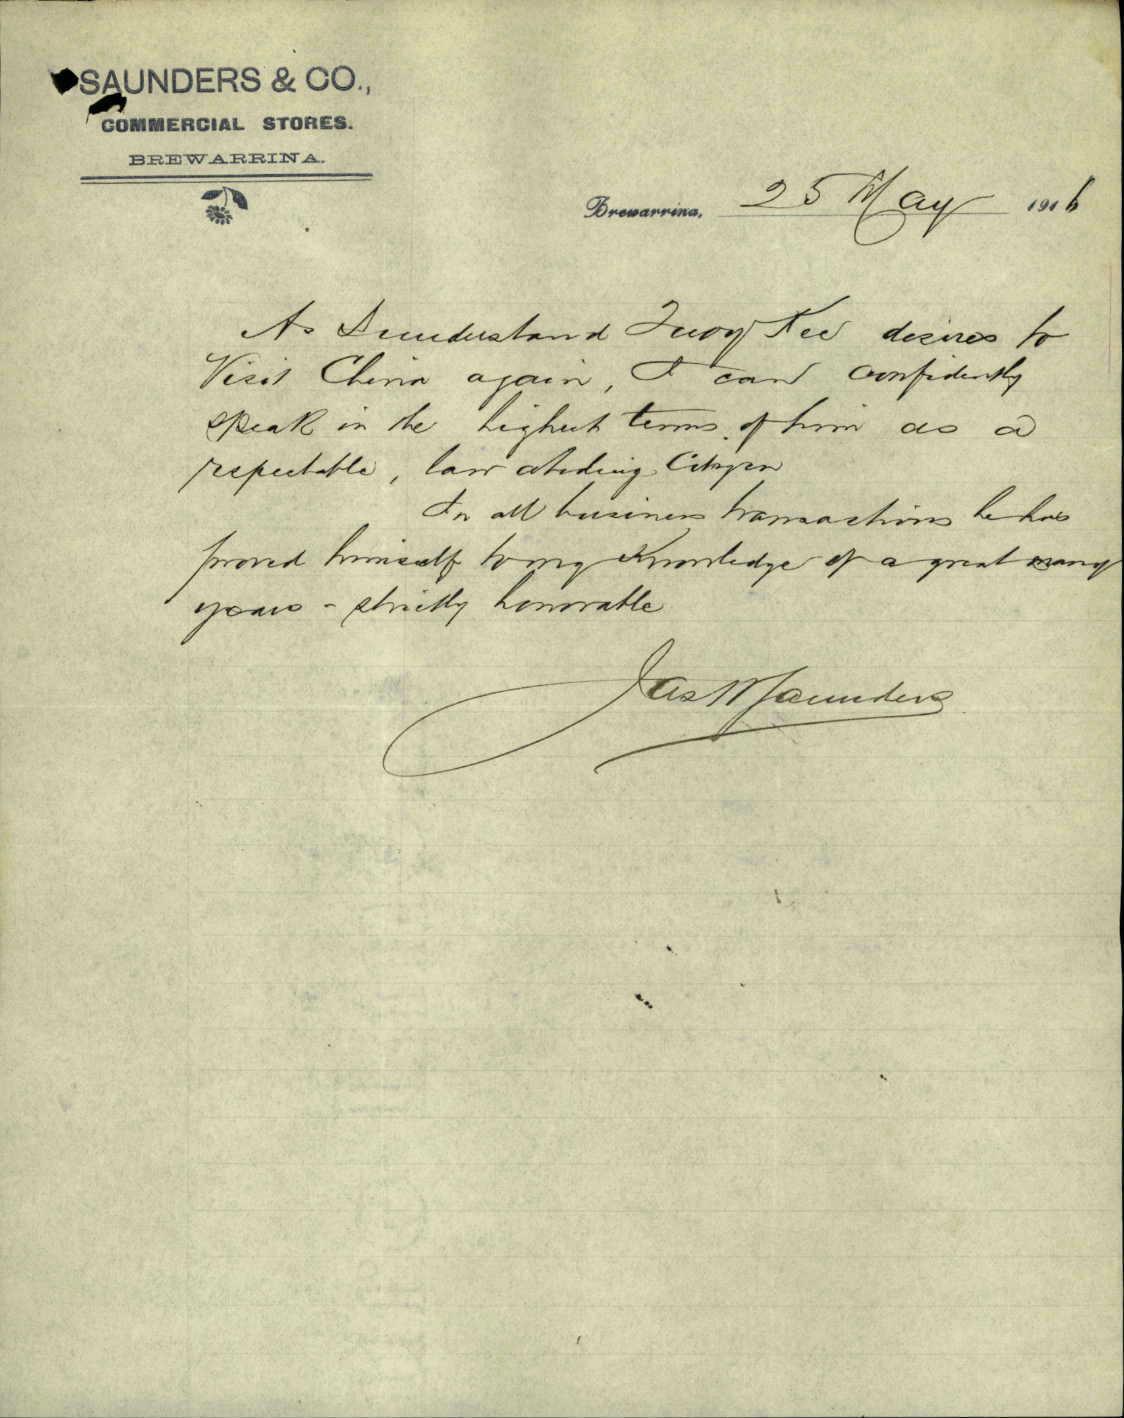 SAUNDERS & CO.,
COMMERCIAL STORES.
BREWARRINA.
Brewarrina, 25 May 1916
As I understand Kee desires to
Visit China again, I can confidently
speak in the highest terms of him as a
respectable, law abiding Citizen
In all business transactions he has
proved himself to my knowledge of a great many
years - strictly honorable
Jas W Saunders